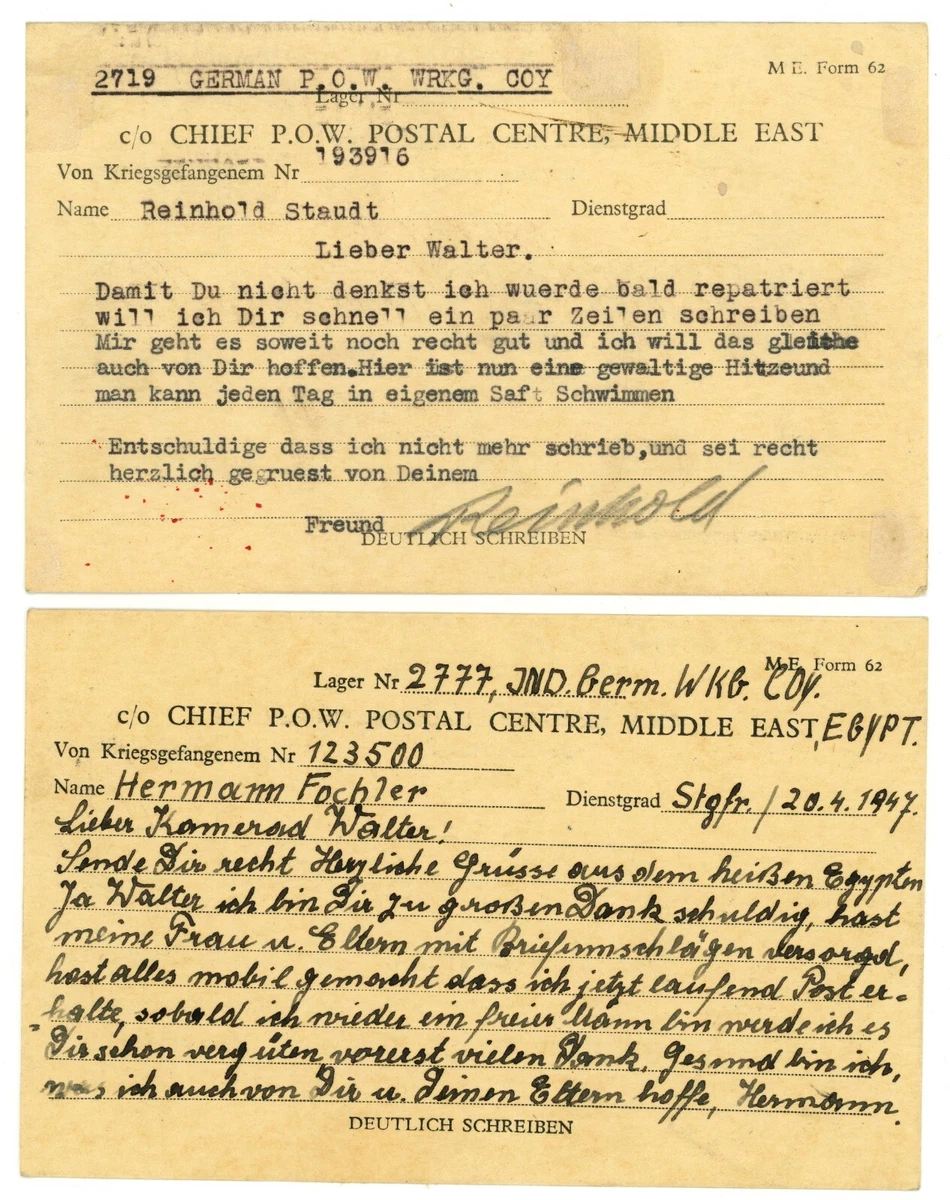 2719 GERMAN P.O.W. WRKG. COY
M E. Form 62
Lager Nr
c/o CHIEF P.O.W. POSTAL CENTRE, MIDDLE EAST
Von Kriegsgefangenem Nr 193916
Name Reinhold Staudt Dienstgrad
Lieber Walter.
Damit Du nicht denkst ich wuerde bald repatriert
will ich Dir schnell ein paar Zeilen schreiben
Mir geht es soweit noch recht gut und ich will das gleiche
auch von Dir hoffen.Hier ist nun eine gewaltige Hitzeund
man kann jeden Tag in eigenem Saft Schwimmen
Entschuldige dass ich nicht mehr schrieb,und sei recht
herzlich gegruest von Deinem
Freund Reinhold
DEUTLICH SCHREIBEN
M.E. Form 62
Lager Nr 2777, IND. Germ. WKG. COY.
c/o CHIEF P.O.W. POSTAL CENTRE, MIDDLE EAST, EGYPT.
Von Kriegsgefangenem Nr 123500
Name Hermann Fochler Dienstgrad Stgfr. / 20.4.1947.
Lieber Kamerad Walter!
Sende Dir recht Herzliche Grüsse aus dem heißen Egypten
Ja Walter ich bin Dir zu großen Dank schuldig, hast
meine Frau u. Eltern mit Briefumschlägen versorgd,
hast alles mobil gemacht dass ich jetzt laufend Post er=
=halte, sobald ich wieder ein freier Mann bin werde ich es
Dir schon vergüten, vorerst vielen Dank. Gesund bin ich,
was ich auch von Dir u. Deinen Eltern hoffe, Hermann.
DEUTLICH SCHREIBEN